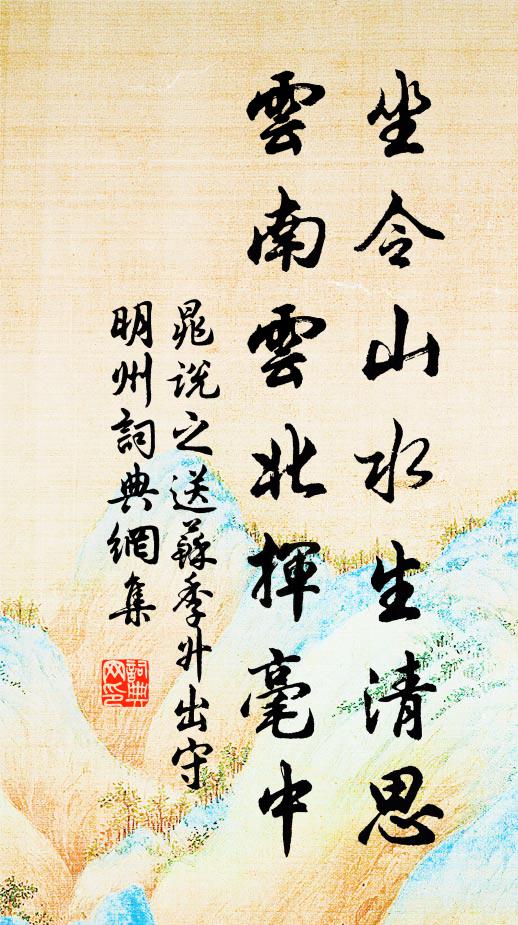 坐令山水生清思
雲南雲北揮毫中
晁說之送蘇季升出守
明州詞典網集
詞典
网印